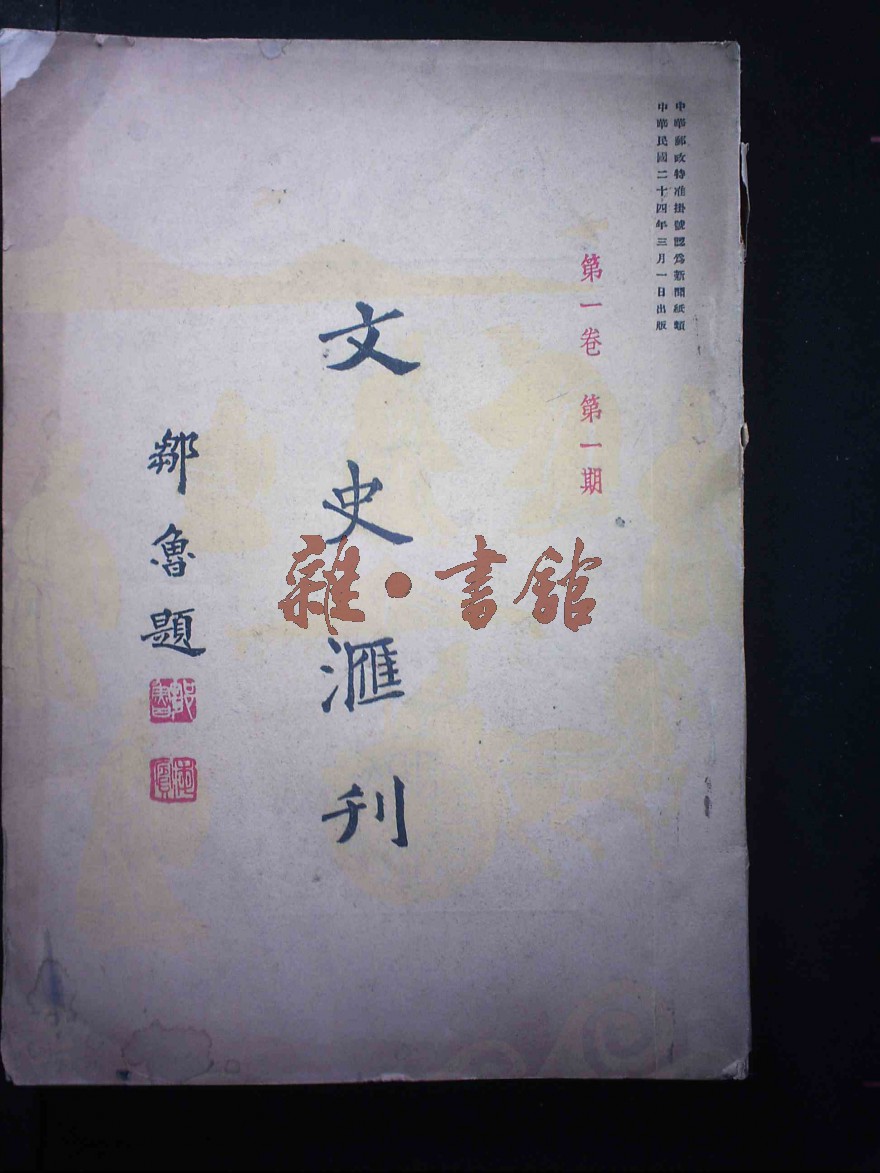 中華郵政特准掛號認爲新聞紙類
中華民國二十四年三月一日出版
第一卷 第一期
文史滙刊
鄒魯題
雜·書館